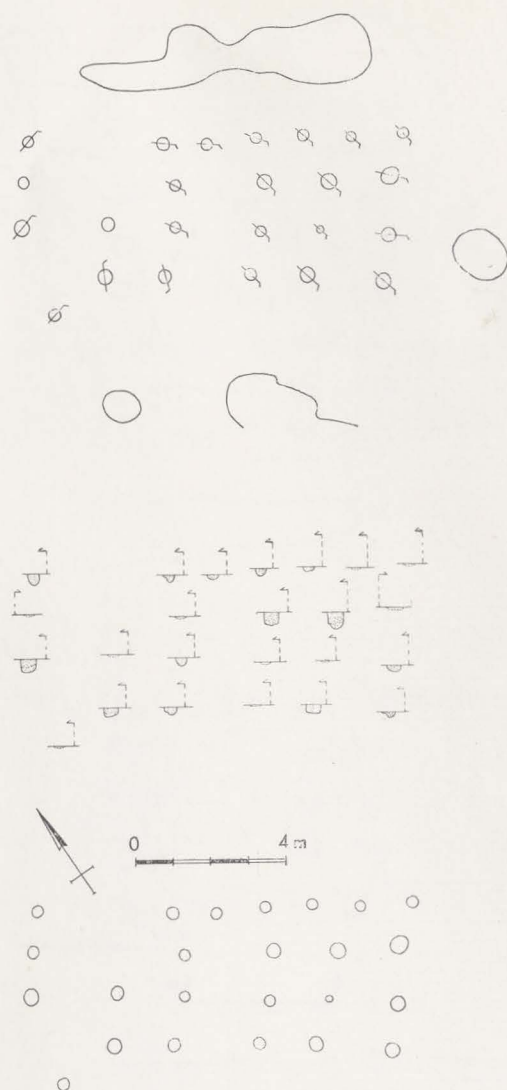 0 4 m